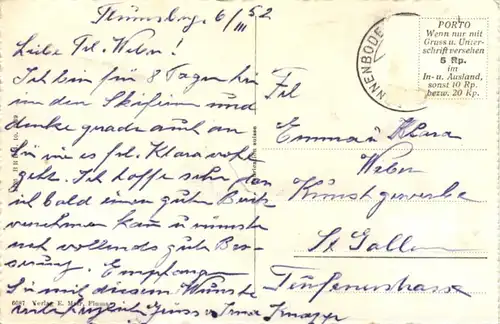 6/III 52
Liebe Frl. Weber!
Ich bin für 8 Tagen hier
in den Skiferien und
denke grade auch an
Sie wie es Frl. Klara wohl
geht. Ich hoffe sehr dass
ich bald einen guten Bericht
vernehmen kann u wünsche
vollends gute Bes-
serung. Empfangen
Sie mit diesem Wunsche
recht herzlich Grüsse v. Irma
PORTO
Wenn nur mit
Gruss u. Unter-
schrift versehen
5 Rp.
im
In- u. Ausland,
sonst 10 Rp.
bezw. 20 Rp.
NNENBODE
Frl
Emma u Klara
Weber
Kunstgewerbe
St. Gallen
Teufenerstrasse
Verlag E. Flums